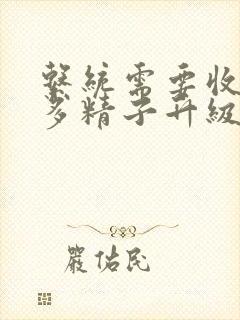 繫統需要收
多精子升級
嚴佑民